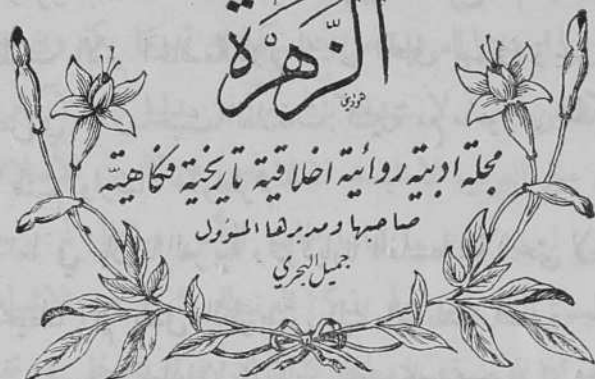 الزَّهرَة
مجلة ادبية روائية اخلاقية تاريخية فكاهية
صاحبها ومديرها المسؤول
جميل البحري